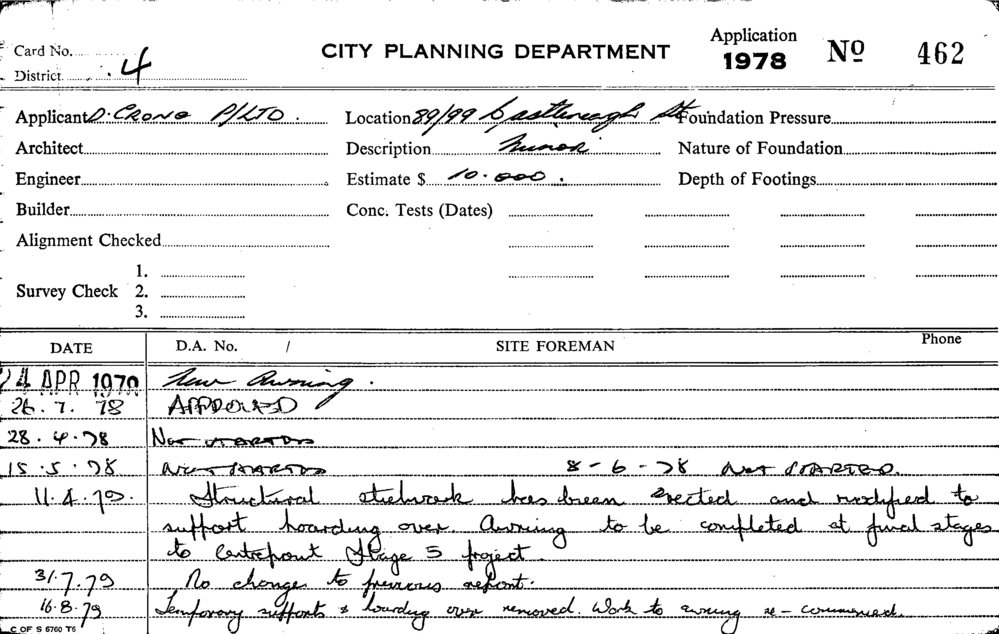 Card No. CITY PLANNING DEPARTMENT Application 1978 Nº 462
District 4
Applicant D. CRONE P/LTD. Location 89/99 Castlereagh St Foundation Pressure
Architect Description Minor Nature of Foundation
Engineer Estimate $ 10.000. Depth of Footings
Builder Conc. Tests (Dates)
Alignment Checked
1.
Survey Check 2.
3.
DATE D.A. No. / SITE FOREMAN Phone
24 APR 1979 New Awning.
26.7.78 APPROVED
28.4.78 Not STARTED
15.5.78 Not STARTED 8-6-78 Not STARTED.
11.4.79. Structural steelwork has been erected and modified to
support hoarding over. Awning to be completed at final stages
to Centrepoint Stage 5 project.
31.7.79 No change to previous report.
16.8.79 Temporary supports & hoarding over removed. Work to awning re-commenced.
C OF S 6760 T5